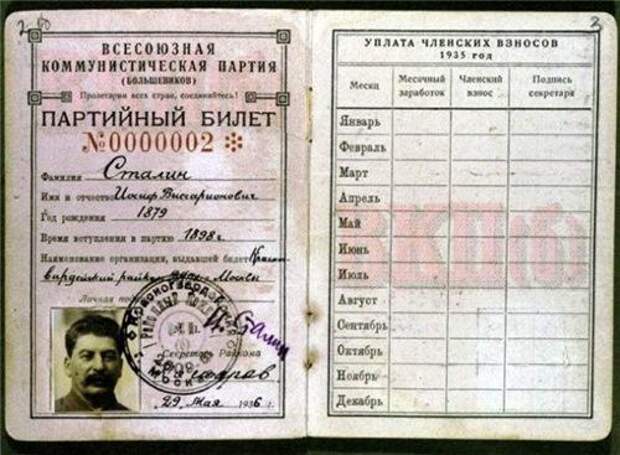 2
ВСЕСОЮЗНАЯ
КОММУНИСТИЧЕСКАЯ ПАРТИЯ
(БОЛЬШЕВИКОВ)
Пролетарии всех стран, соединяйтесь!
ПАРТИЙНЫЙ БИЛЕТ
№0000002
Фамилия Сталин
Имя и отчество Иосиф Виссарионович
Год рождения 1879
Время вступления в партию 1898 г.
Наименование организации, выдавшей билет Красно
гвардейский райком Москвы
Личная
И. Сталин
Секретарь Райкома
29 Мая 1936 г.
3
УПЛАТА ЧЛЕНСКИХ ВЗНОСОВ
1935 год
Месяц Месячный заработок Членский взнос Подпись секретаря
Январь
Февраль
Март
Апрель
Май
Июнь
Июль
Август
Сентябрь
Октябрь
Ноябрь
Декабрь
ВКП(б)